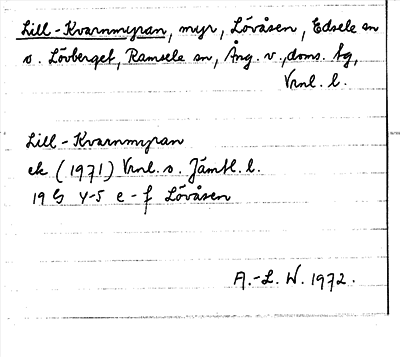 Lill-Kvarnmyran, myr, Lövåsen, Edsele sn
o. Lövberget, Ramsele sn, Ång. v., doms. tg,
Vrnl. l.
Lill-Kvarnmyran
ek (1971) Vrnl. o. Jämtl. l.
19 G 4-5 e-f Lövåsen
A.-L. W. 1972.